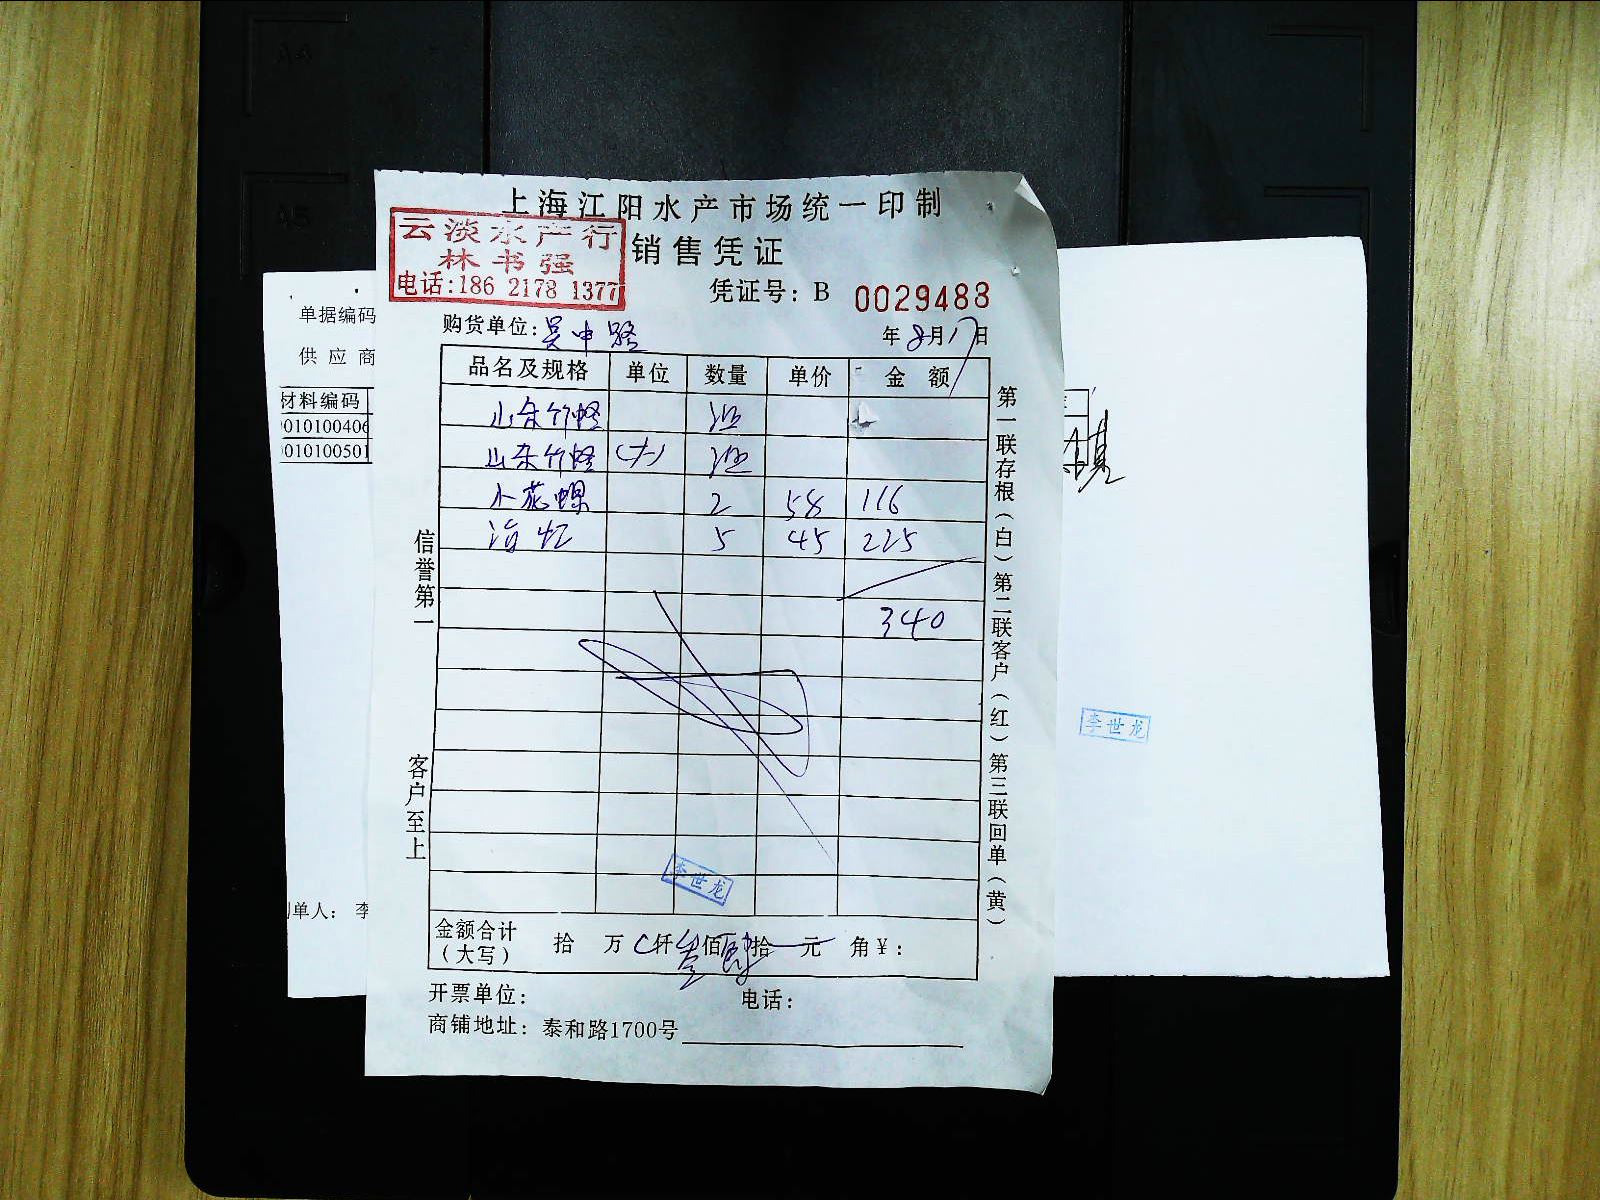 上海江阳水产市场统一印制
云淡水产行
林书强
电话:186 2178 1377
销售凭证
凭证号: B 0029488
购货单位:吴中路
年8月17日
品名及规格 单位 数量 单价 金额
山东竹蛏
山东竹蛏 (大)
小花螺 2 58 116
海虹 5 45 225
340
李世龙
金额合计
(大写)
拾 万 仟 叁佰 肆拾 元 角¥:
开票单位: 电话:
商铺地址: 泰和路1700号
信誉第一
客户至上
第一联存根(白)第二联客户(红)第三联回单(黄)
单据编码
供应商
材料编码
010100406
010100501
单人: 李
李世龙
A4
A5